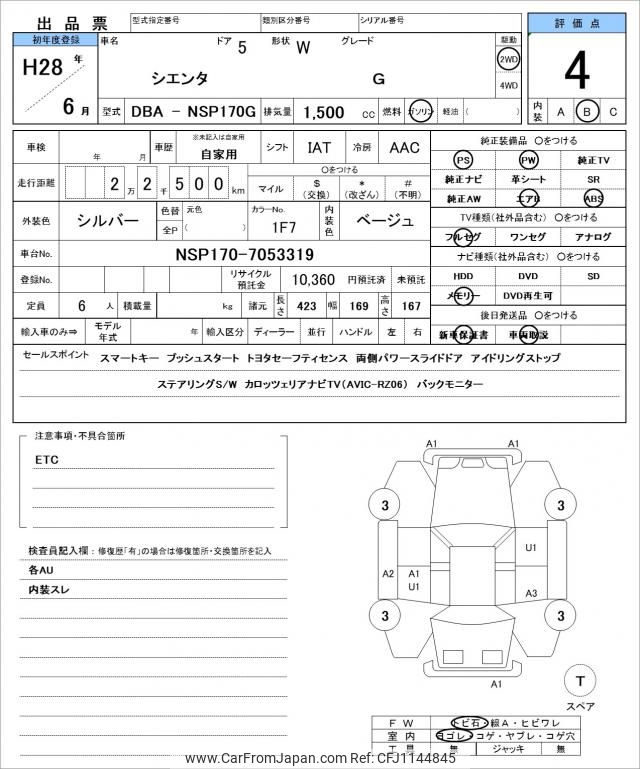 出品票 型式指定番号 類別区分番号 シリアル番号
評価点
初年度登録 車名 ドア 5 形状 W グレード 駆動
H28 年 シエンタ G 2WD 4
4WD
6 月 型式 DBA - NSP170G 排気量 1,500 cc 燃料 ガソリン 軽油 ( ) 内装 A B C
車検 年 月 車歴 ※未記入は自家用 自家用 シフト IAT 冷房 AAC
走行距離 2 万 2 千 5 0 0 km ○をつける
マイル $ (交換) * (改ざん) # (不明)
外装色 シルバー 色替 元色 全P ( ) カラーNo. 1F7 内装色 ベージュ
車台No. NSP170-7053319
登録No. リサイクル預託金 10,360 円預託済 未預託
定員 6 人 積載量 kg 諸元 長さ 423 幅 169 高さ 167
輸入車のみ⇒ モデル年式 年 輸入区分 ディーラー 並行 ハンドル 左 右
純正装備品 ○をつける
PS PW 純正TV
純正ナビ 革シート SR
純正AW エアB ABS
TV種類(社外品含む) ○をつける
フルセグ ワンセグ アナログ
ナビ種類(社外品含む) ○をつける
HDD DVD SD
メモリー DVD再生可
後日発送品 ○をつける
新車保証書 車両取説
セールスポイント スマートキー プッシュスタート トヨタセーフティセンス 両側パワースライドドア アイドリングストップ
ステアリングS/W カロッツェリアナビTV(AVIC-RZ06) バックモニター
注意事項・不具合箇所
ETC
検査員記入欄：修復歴「有」の場合は修復箇所・交換箇所を記入
各AU
内装スレ
A1 A1
3 3
U1
A2 A1 U1 A3
3 3
A1
T
スペア
FW トビ石・線A・ヒビワレ
室内 ヨゴレ・コゲ・ヤブレ・コゲ穴
工具 無 ジャッキ 無
www.CarFromJapan.com Ref: CFJ1144845